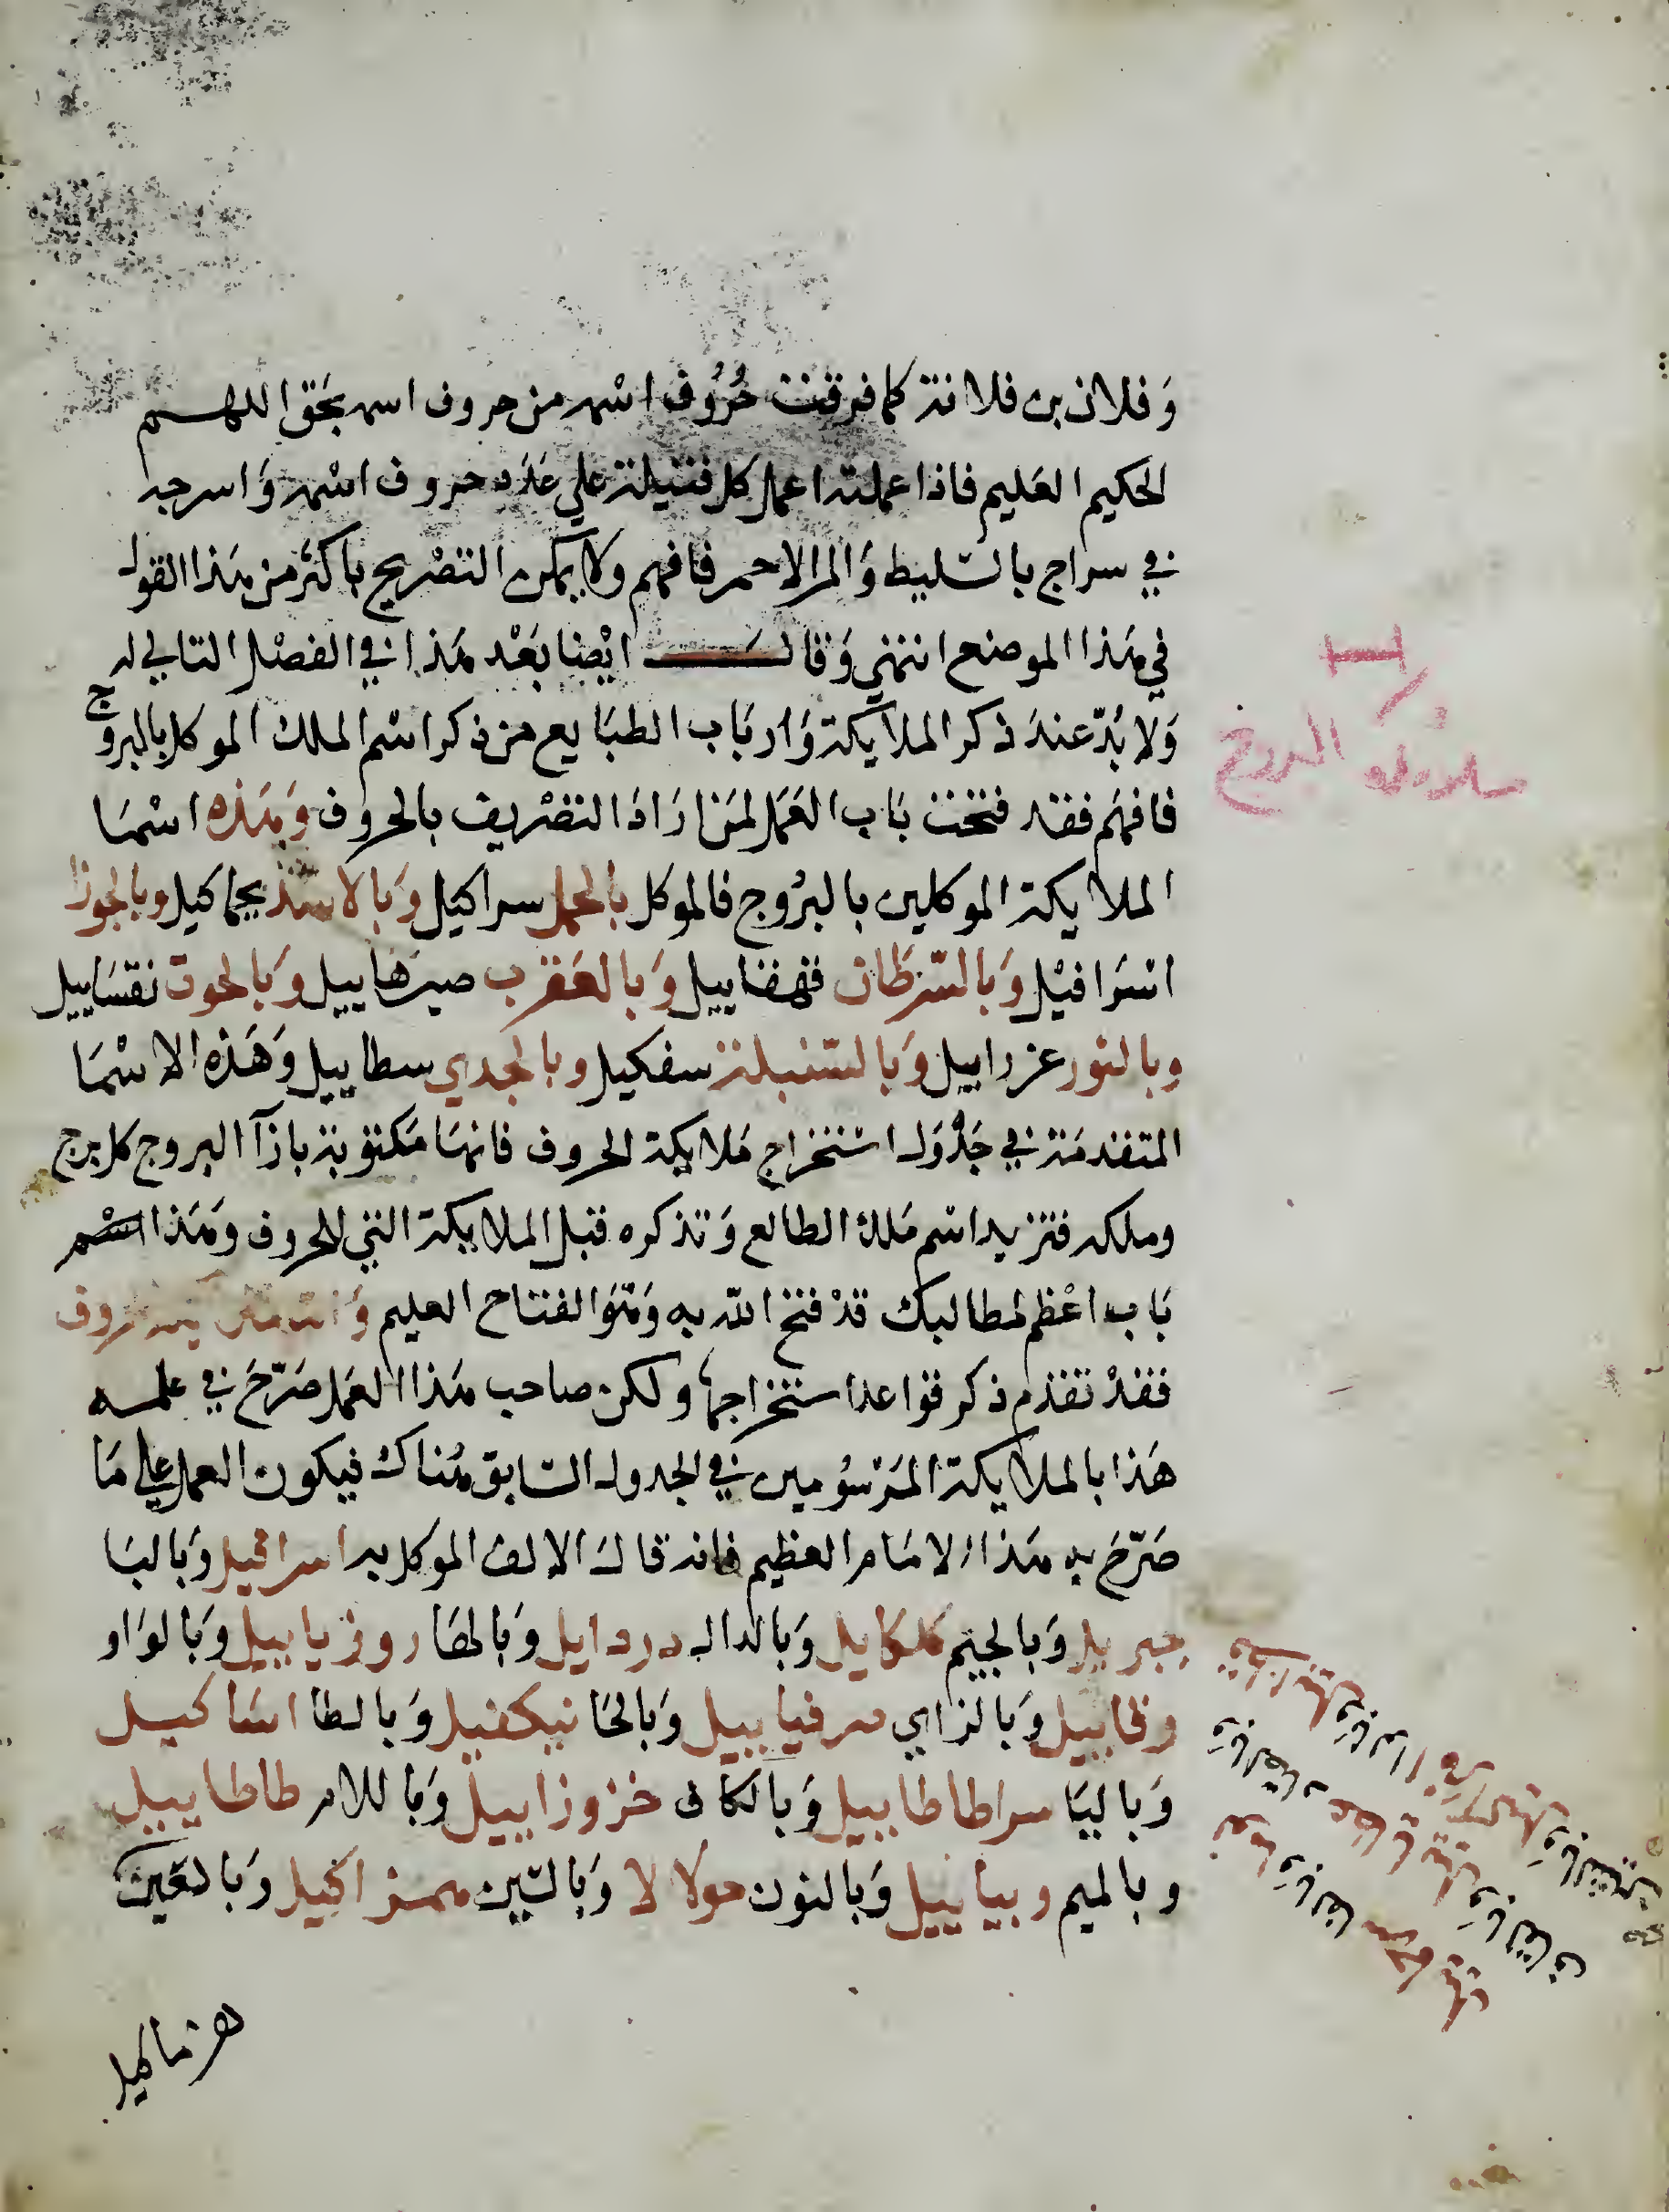 وَفلان بن فلانة كما فرقت حُرُوف اسْمه من حروف اسمه بحَق اللهم
الحكيم العَليم فاذا عملته اعمل كل فتيلة على عَدَد حروف اسْمه وَاسرجه
في سراج بالسّليط وَالمر الاحمر فافهم ولا يمكن التصْريح باكثر من هَذا القول
في هَذا الموضع انتهي وَقالَ ايْضا بَعْد هَذا في الفصْل التالي له
وَلا بُدّ عندَ ذكر الملايكة وَارباب الطبَايع من ذكر اسْم الملك الموكل بالبروج
فافهَم فقد فتحت بَاب العَمَل لمَن ارَادَ التصْريف بالحروف وَهَذه اسْمَا
الملايكة الموكلين بالبرُوج فالموكل بالحمل سراكيل وَبالاسَد يحماكيل وبالجوزا
اسْرَافيْل وَبالسّرطَان فهفاييل وَبالعَقرب صرهاييل وَبالحوت نقسَاييل
وبالثور عزراييل وَبالسّنبلة سفكيل وبالجدي سطاييل وَهَذه الاسْمَا
المتقدمَة في جَدْوَل استخراج مَلايكة الحروف فانهَا مَكتوبة بازآ البروج كل برج
وملكه فتزيد اسْم مَلك الطالع وَتذكره قبل الملايكة التي للحروف وَهَذا اسْم
بَاب اعْظم لمطالبك قدْ فتح الله به وَهُوَ الفتاح العليم
فقدْ تقدم ذكر قواعد استخراجها ولكن صاحب هَذا العَمَل صَرّحَ في علمه
هَذا بالملايكة المَرْسُومين في الجدول السّابق هُناك فيكون العمل على مَا
صَرّحَ به هَذا الامَام العظيم فانه قال الالف الموكل به اسرافيل وَبالبَا
جبريل وَبالجيم كلكايل وَبالدال دردايل وَبالهَا روزياييل وَبالوَاو
وفاييل وَبالزاي سرفياييل وَبالحَا نيكفيل وَبالطا اسَاكيل
وَبالیَا سراطاطاييل وَبالكاف خزوزاييل وَباللام طاطاييل
وبالميم وبياييل وَبالنون حولالا وَبالسّين همزاكيل وَبالعَين
هزماكيل
البروج